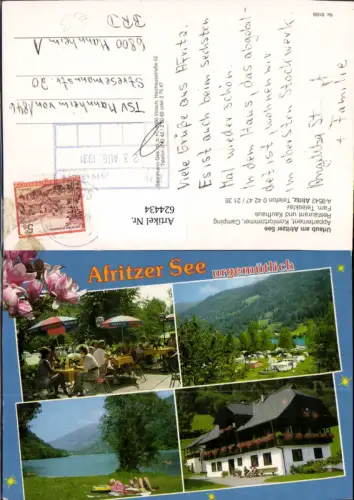 Nr. 9180
TSV Mannheim von 1846
Stresemannstr. 20
6800 Mannheim 1
BRD
Viele Grüße aus Afritz.
Es ist auch beim sechsten
Mal wieder schön.
In dem Haus, das abgebil-
det ist, wohnen wir
im obersten Stockwerk.
23. AUG. 1991
S 5
Artikel Nr.
624434
Urlaub am Afritzer See
Appartement, Komfortzimmer, Camping
Restaurant und Kaufhaus
Fam. Tebleskier
A-9542 Afritz, Telefon 0 42 47 / 21 35
Afritzer See
urgemütlich